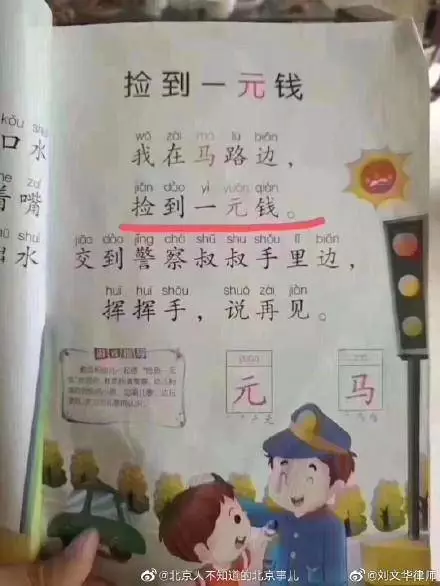 捡到一元钱
kǒu shuǐ
口水
wǒ zài mǎ lù biān
我在马路边，
jiǎn dào yì yuán qián
捡到一元钱。
着嘴
jiāo dào jǐng chá shū shu shǒu lǐ biān
交到警察叔叔手里边，
水
huī huī shǒu shuō zài jiàn
挥挥手，说再见。
游戏指导
元 马
@北京人不知道的北京事儿 @刘文华律师